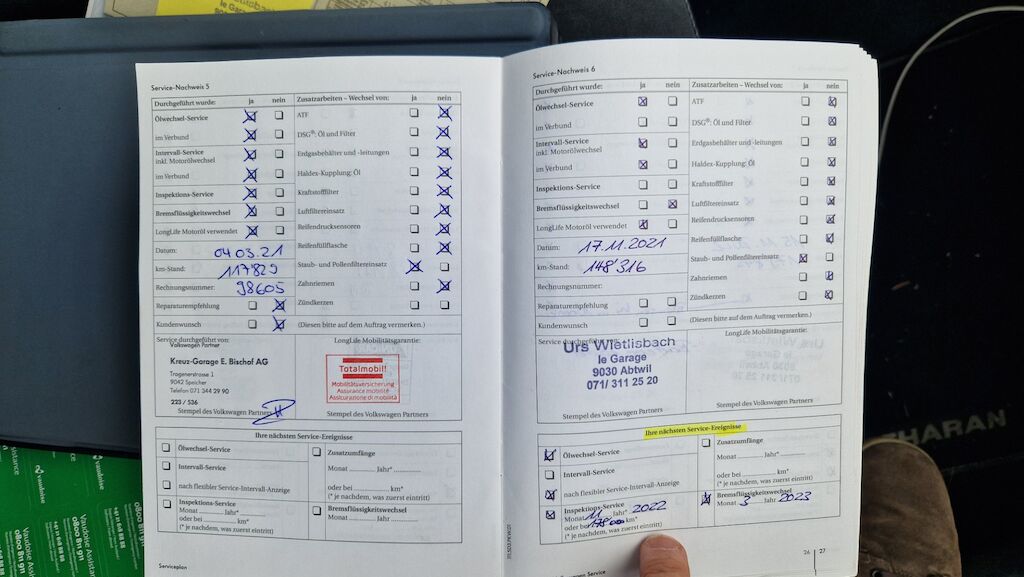 le Garage
9030 Ab
Service-Nachweis 5
Durchgeführt wurde: ja nein Zusatzarbeiten – Wechsel von: ja nein
Ölwechsel-Service ATF
im Verbund DSG®: Öl und Filter
Intervall-Service
inkl. Motorölwechsel Erdgasbehälter und -leitungen
im Verbund Haldex-Kupplung: Öl
Inspektions-Service Kraftstofffilter
Bremsflüssigkeitswechsel Luftfiltereinsatz
LongLife Motoröl verwendet Reifendrucksensoren
Datum: 04 03. 21 Reifenfüllflasche
km-Stand: 117829 Staub- und Pollenfiltereinsatz
Rechnungsnummer: 98605 Zahnriemen
Reparaturempfehlung Zündkerzen
Kundenwunsch (Diesen bitte auf dem Auftrag vermerken.)
Service durchgeführt von: LongLife Mobilitätsgarantie:
Volkswagen Partner
Kreuz-Garage E. Bischof AG
Tragenerstrasse 1
9042 Speicher
Telefon 071 344 29 90
223 / 536
Stempel des Volkswagen Partners
Totalmobil!
Mobilitätsversicherung
Assurance mobilité
Assicurazione di mobilità
Stempel des Volkswagen Partners
Ihre nächsten Service-Ereignisse
Ölwechsel-Service Zusatzumfänge
Intervall-Service Monat Jahr*
nach flexibler Service-Intervall-Anzeige oder bei km*
(* je nachdem, was zuerst eintritt)
Inspektions-Service Bremsflüssigkeitswechsel
Monat Jahr* Monat Jahr
oder bei km*
(* je nachdem, was zuerst eintritt)
Serviceplan
Service-Nachweis 6
Durchgeführt wurde: ja nein Zusatzarbeiten – Wechsel von: ja nein
Ölwechsel-Service ATF
im Verbund DSG®: Öl und Filter
Intervall-Service Erdgasbehälter und -leitungen
inkl. Motorölwechsel
im Verbund Haldex-Kupplung: Öl
Inspektions-Service Kraftstofffilter
Bremsflüssigkeitswechsel Luftfiltereinsatz
LongLife Motoröl verwendet Reifendrucksensoren
Datum: 17.11.2021 Reifenfüllflasche
km-Stand: 148'316 Staub- und Pollenfiltereinsatz
Rechnungsnummer: Zahnriemen
Reparaturempfehlung Zündkerzen
Kundenwunsch (Diesen bitte auf dem Auftrag vermerken.)
Service durchgeführt von: LongLife Mobilitätsgarantie:
Urs Wietlisbach
le Garage
9030 Abtwil
071/ 311 25 20
Stempel des Volkswagen Partners Stempel des Volkswagen Partners
Ihre nächsten Service-Ereignisse
Ölwechsel-Service Zusatzumfänge
Intervall-Service Monat Jahr*
nach flexibler Service-Intervall-Anzeige oder bei km*
(* je nachdem, was zuerst eintritt)
Inspektions-Service Bremsflüssigkeitswechsel
Monat 11 Jahr 2022 Monat 3 Jahr 2023
oder bei km*
(* je nachdem, was zuerst eintritt)
26 27
Service
HARAN
vaudoise
Vaudoise Assistance
0800 811 911